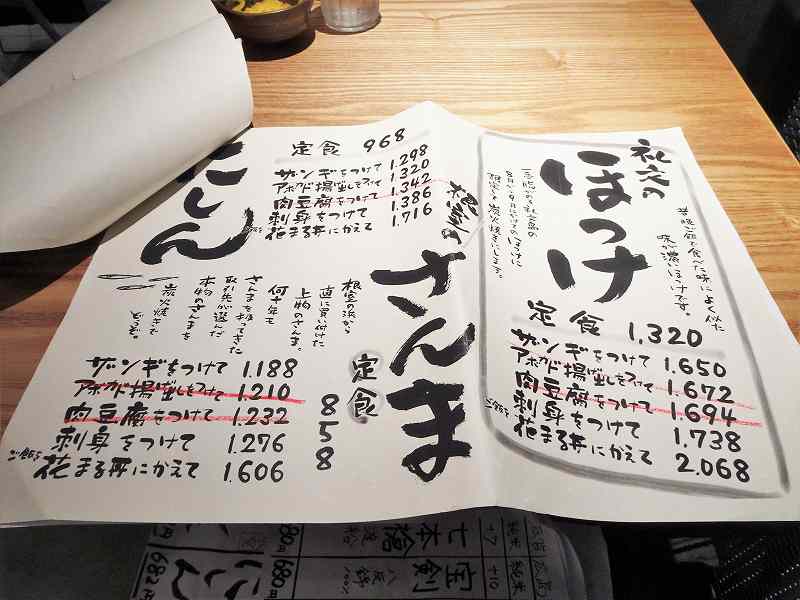 礼文の
ほっけ
昔、晩ご飯で食べた味によく似た
味が濃いほっけです。
8月から9月にかけてのほっけに
限定して炭火焼きにします。
定食 1,320
ザンギをつけて 1.650
アボカド揚げ出しをつけて 1.672
肉豆腐をつけて 1.694
刺身をつけて 1.738
ご飯を花まる丼にかえて 2.068
根室の
さんま
根室の浜から
直に買い付けた
上物のさんま。
何十年も
さんまを扱ってきた
取引先が選んだ
本物のさんまを
炭火焼きで
どうぞ。
定食 858
ザンギをつけて 1.188
アボカド揚げ出しをつけて 1.210
肉豆腐をつけて 1.232
刺身をつけて 1.276
ご飯を花まる丼にかえて 1.606
にしん
定食 968
ザンギをつけて 1.298
アボカド揚げ出しをつけて 1.320
肉豆腐をつけて 1.342
刺身をつけて 1.386
ご飯を花まる丼にかえて 1.716
広島
純米
+10
680円
純米
+7
七本槍
682円